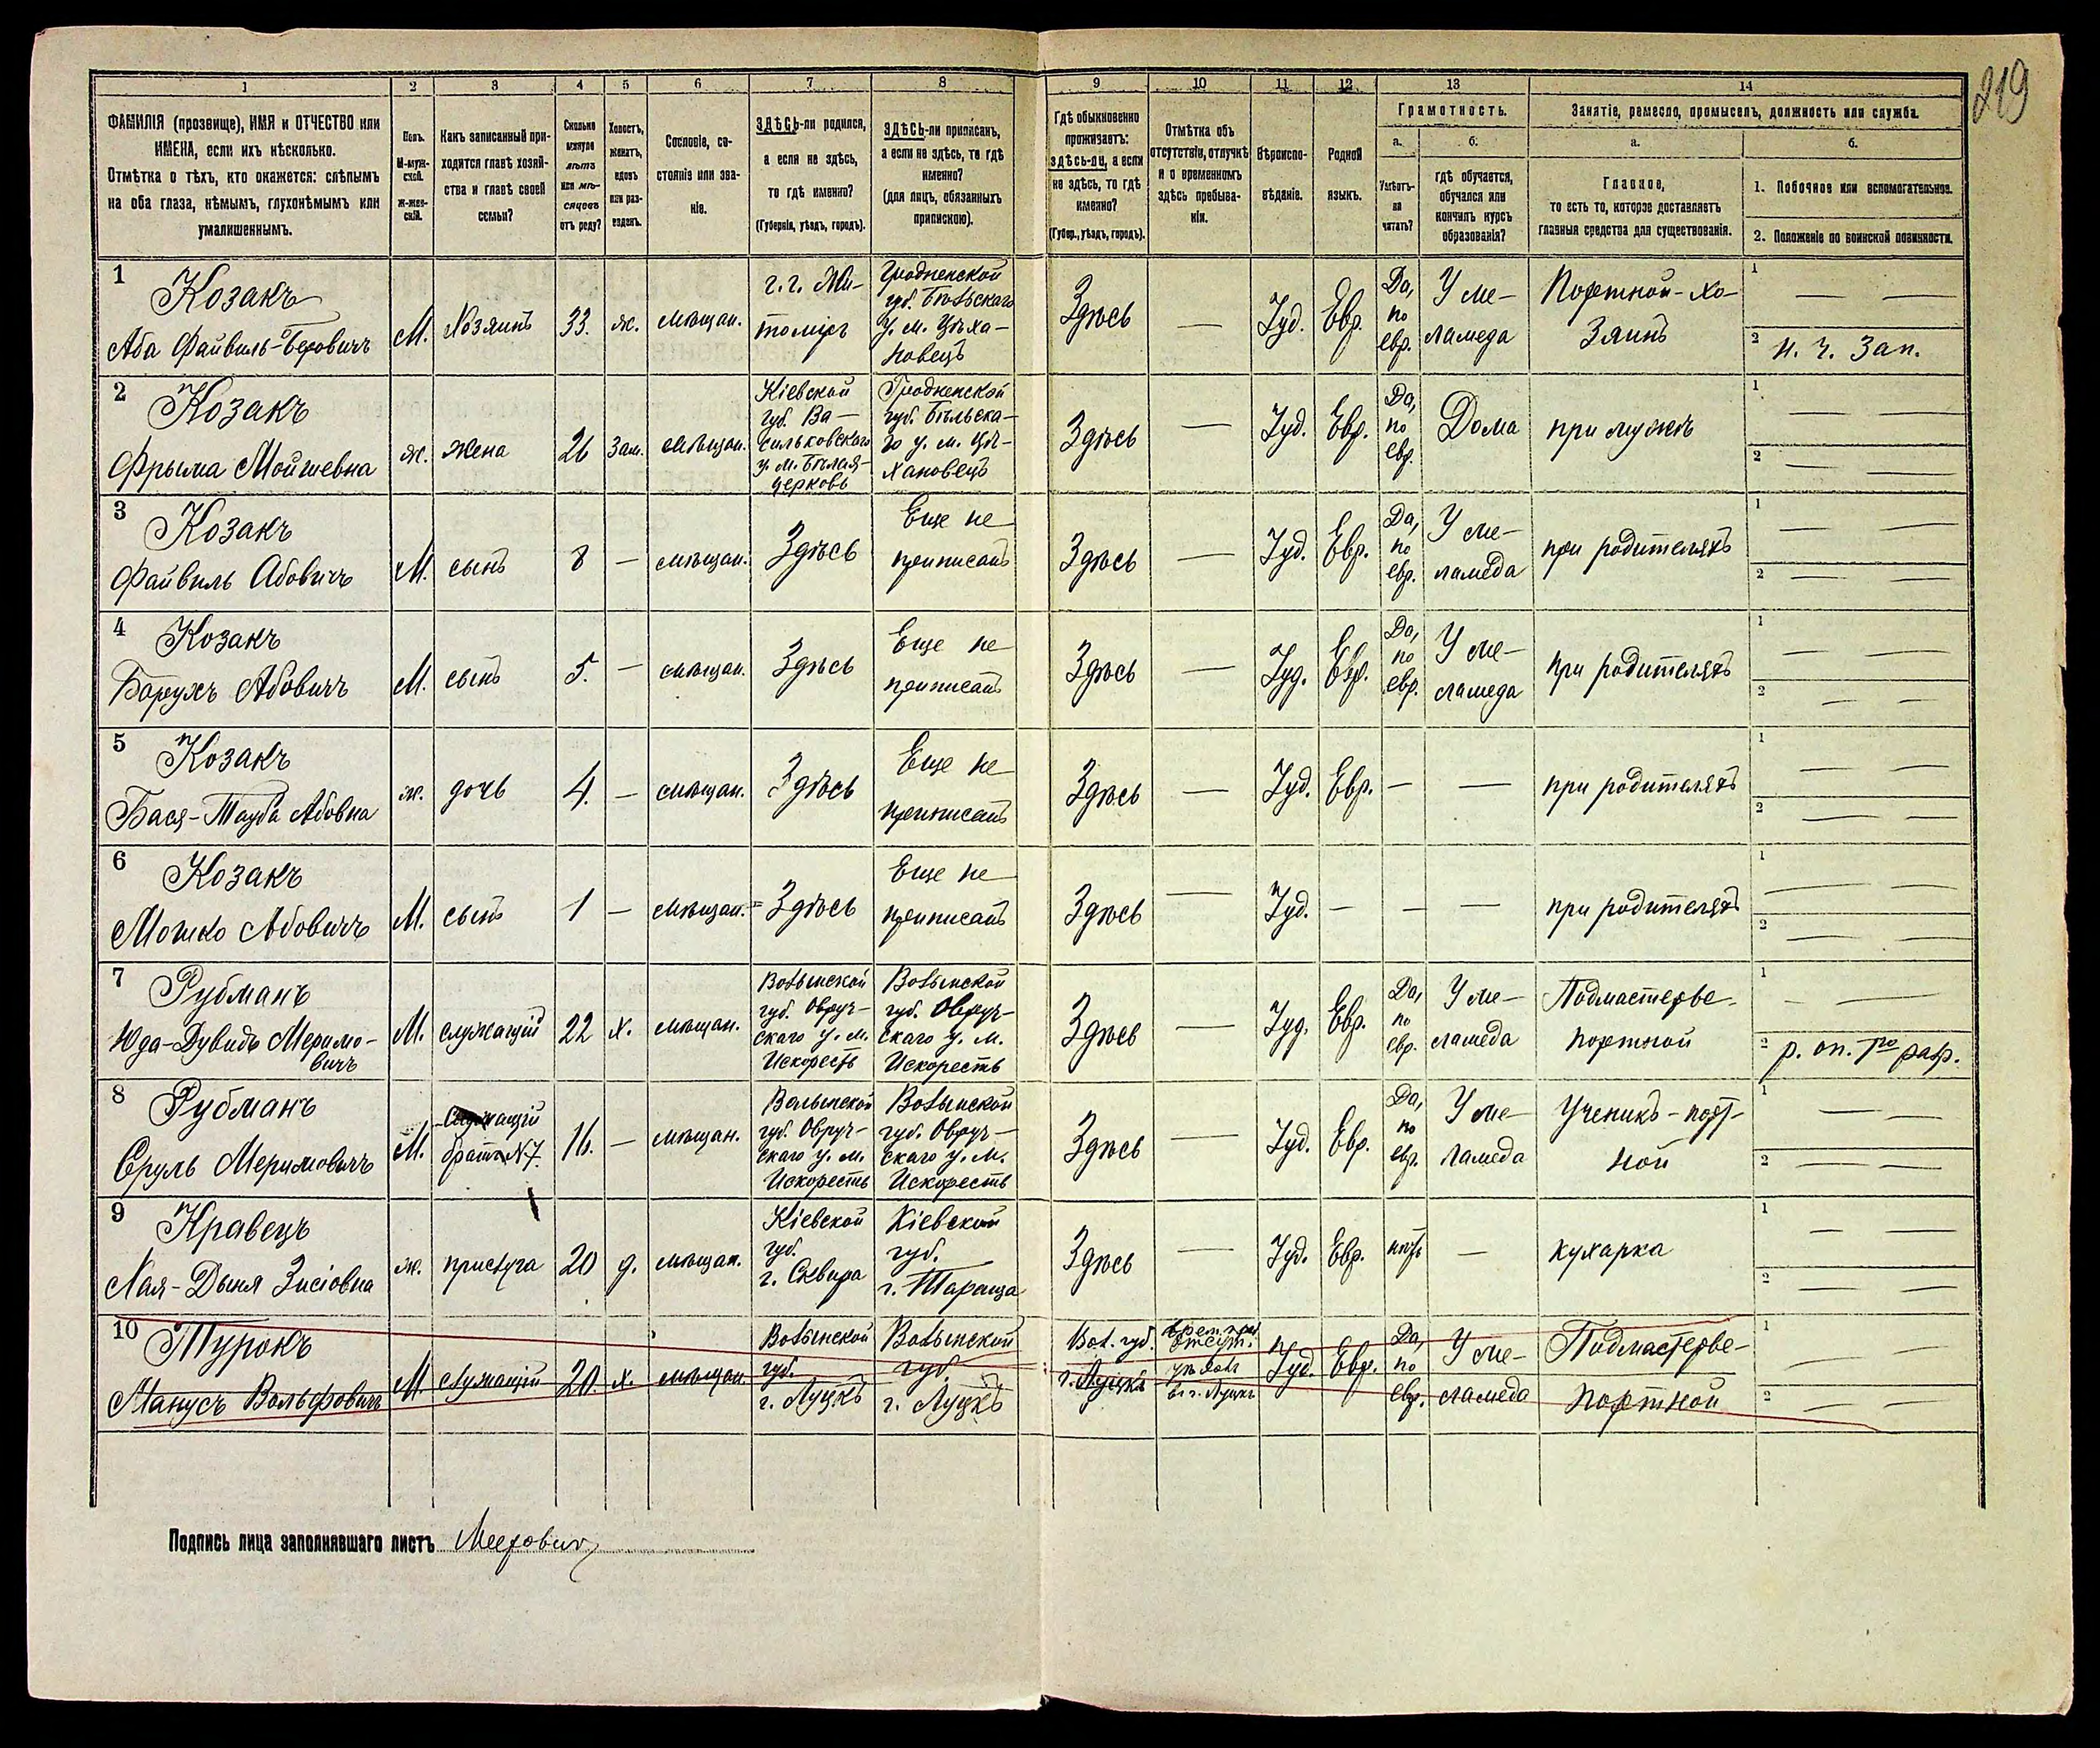 219
1 2 3 4 5 6 7 8 9 10 11 12 13 14
ФАМИЛІЯ (прозвище), ИМЯ и ОТЧЕСТВО или
ИМЕНА, если ихъ нѣсколько.
Отмѣтка о тѣхъ, кто окажется: слѣпымъ
на оба глаза, нѣмымъ, глухонѣмымъ или
умалишеннымъ.
Полъ.
М-муж-
ской.
Ж-жен-
скій.
Какъ записанный при-
ходится главѣ хозяй-
ства и главѣ своей
семьи?
Сколько
минуло
лѣтъ
или мѣ-
сяцевъ
отъ роду?
Холостъ,
женатъ,
вдовъ
или раз-
веденъ.
Сословіе, со-
стояніе или зва-
ніе.
ЗДѢСЬ-ли родился,
а если не здѣсь,
то гдѣ именно?
(Губернія, уѣздъ, городъ).
ЗДѢСЬ-ли приписанъ,
а если не здѣсь, то гдѣ
именно?
(для лицъ, обязанныхъ
припискою).
Гдѣ обыкновенно
проживаетъ:
здѣсь-ли, а если
не здѣсь, то гдѣ
именно?
(Губер., уѣздъ, городъ).
Отмѣтка объ
отсутствіи, отлучкѣ
и о временномъ
здѣсь пребыва-
ніи.
Вѣроиспо-
вѣданіе.
Родной
языкъ.
Грамотность.
а.
Умѣетъ-
ли
читать?
б.
гдѣ обучается,
обучался или
кончилъ курсъ
образованія?
Занятіе, ремесло, промыселъ, должность или служба.
а.
Главное,
то есть то, которое доставляетъ
главныя средства для существованія.
б.
1. Побочное или вспомогательное.
2. Положеніе по воинской повинности.
1
Козакъ
Аба Файвиль-Беровичъ
М.
Хозяинъ
33.
ж.
мѣщан.
г. г. Жи-
томiръ
Гродненской
губ. Бѣльскаго
у. м. Цѣха-
новецъ
Здѣсь
—
Іуд.
Евр.
Да,
по
евр.
У ме-
ламеда
Портной-хо-
зяинъ
1 — —
2 н. ч. зап.
2
Козакъ
Фрыма Мойшевна
ж.
жена
26
зам.
мѣщан.
Кіевской
губ. Ва-
сильковскаго
у. м. Бѣлая-
церковь
Гродненской
губ. Бѣльска-
го у. м. Цѣ-
хановецъ
Здѣсь
—
Іуд.
Евр.
Да,
по
евр.
Дома
при мужѣ
1 — —
2 — —
3
Козакъ
Файвиль Абовичъ
М.
сынъ
8
—
мѣщан.
Здѣсь
Еще не
приписанъ
Здѣсь
—
Іуд.
Евр.
Да,
по
евр.
У ме-
ламеда
при родителяхъ
1 — —
2 — —
4
Козакъ
Барухъ Абовичъ
М.
сынъ
5.
—
мѣщан.
Здѣсь
Еще не
приписанъ
Здѣсь
—
Іуд.
Евр.
Да,
по
евр.
У ме-
ламеда
при родителяхъ
1 — —
2 — —
5
Козакъ
Бася-Тауба Абовна
ж.
дочь
4.
—
мѣщан.
Здѣсь
Еще не
приписанъ
Здѣсь
—
Іуд.
Евр.
—
—
при родителяхъ
1 — —
2 — —
6
Козакъ
Мошко Абовичъ
М.
сынъ
1
—
мѣщан.
Здѣсь
Еще не
приписанъ
Здѣсь
—
Іуд.
—
—
—
при родителяхъ
1 — —
2 — —
7
Рубманъ
Юда-Дувидъ Меримо-
вичъ
М.
служащій
22
х.
мѣщан.
Волынской
губ. Овруч-
скаго у. м.
Искорость
Волынской
губ. Овруч-
скаго у. м.
Искорость
Здѣсь
—
Іуд.
Евр.
Да,
по
евр.
У ме-
ламеда
Подмастерье-
портной
1 — —
2 р. оп. 1го разр.
8
Рубманъ
Сруль Меримовичъ
М.
Служащій
братъ N 7.
16.
—
мѣщан.
Волынской
губ. Овруч-
скаго у. м.
Искорость
Волынской
губ. Овруч-
скаго у. м.
Искорость
Здѣсь
—
Іуд.
Евр.
Да,
по
евр.
У ме-
ламеда
Ученикъ-порт-
ной
1 — —
2 — —
9
Кравецъ
Хая-Дыня Зисіовна
ж.
прислуга
20
д.
мѣщан.
Кіевской
губ.
г. Сквира
Кіевской
губ.
г. Тараща
Здѣсь
—
Іуд.
Евр.
нѣтъ
—
кухарка
1 — —
2 — —
10
Турокъ
Манусъ Вольфовичъ
М.
служащій
20.
х.
мѣщан.
Волынской
губ.
г. Луцкъ
Волынской
губ.
г. Луцкъ
Вол. губ.
г. Луцкъ
Іуд.
Евр.
Да,
по
евр.
У ме-
ламеда
Подмастерье-
портной
1 — —
2 — —
Подпись лица заполнявшаго листъ Меерович